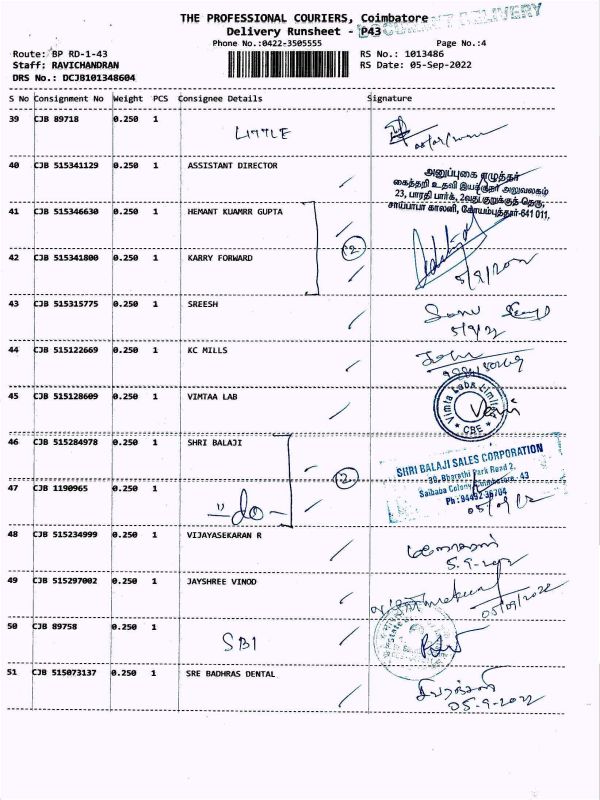 THE PROFESSIONAL COURIERS, Coimbatore
DOCUMENT DELIVERY
Delivery Runsheet - P43
Phone No.:0422-3505555
Page No.:4
Route: BP RD-1-43
RS No.: 1013486
Staff: RAVICHANDRAN
RS Date: 05-Sep-2022
DRS No.: DCJB101348604
S No Consignment No Weight PCS Consignee Details Signature
39 CJB 89718 0.250 1 LITTLE
40 CJB 515341129 0.250 1 ASSISTANT DIRECTOR
அனுப்புகை எழுத்தர்
கைத்தறி உதவி இயக்குநர் அலுவலகம்
23, பாரதி பார்க், 2வது குறுக்குத் தெரு,
சாய்பாபா காலனி, கோயம்புத்தூர்-641 011.
41 CJB 515346630 0.250 1 HEMANT KUAMRR GUPTA
12
42 CJB 515341800 0.250 1 KARRY FORWARD
5/9/2022
43 CJB 515315775 0.250 1 SREESH
5/9/22
44 CJB 515122669 0.250 1 KC MILLS
John
45 CJB 515128609 0.250 1 VIMTAA LAB
Vimta Labs Limited
CBE
46 CJB 515284978 0.250 1 SHRI BALAJI
2
SHRI BALAJI SALES CORPORATION
30, Bharathi Park Road 2,
Saibaba Colony, Coimbatore - 43
47 CJB 1190965 0.250 1 "do-
48 CJB 515234999 0.250 1 VIJAYASEKARAN R
5.9.2022
49 CJB 515297002 0.250 1 JAYSHREE VINOD
05/09/2022
50 CJB 89758 0.250 1 SBI
51 CJB 515073137 0.250 1 SRE BADHRAS DENTAL
05-9-2022